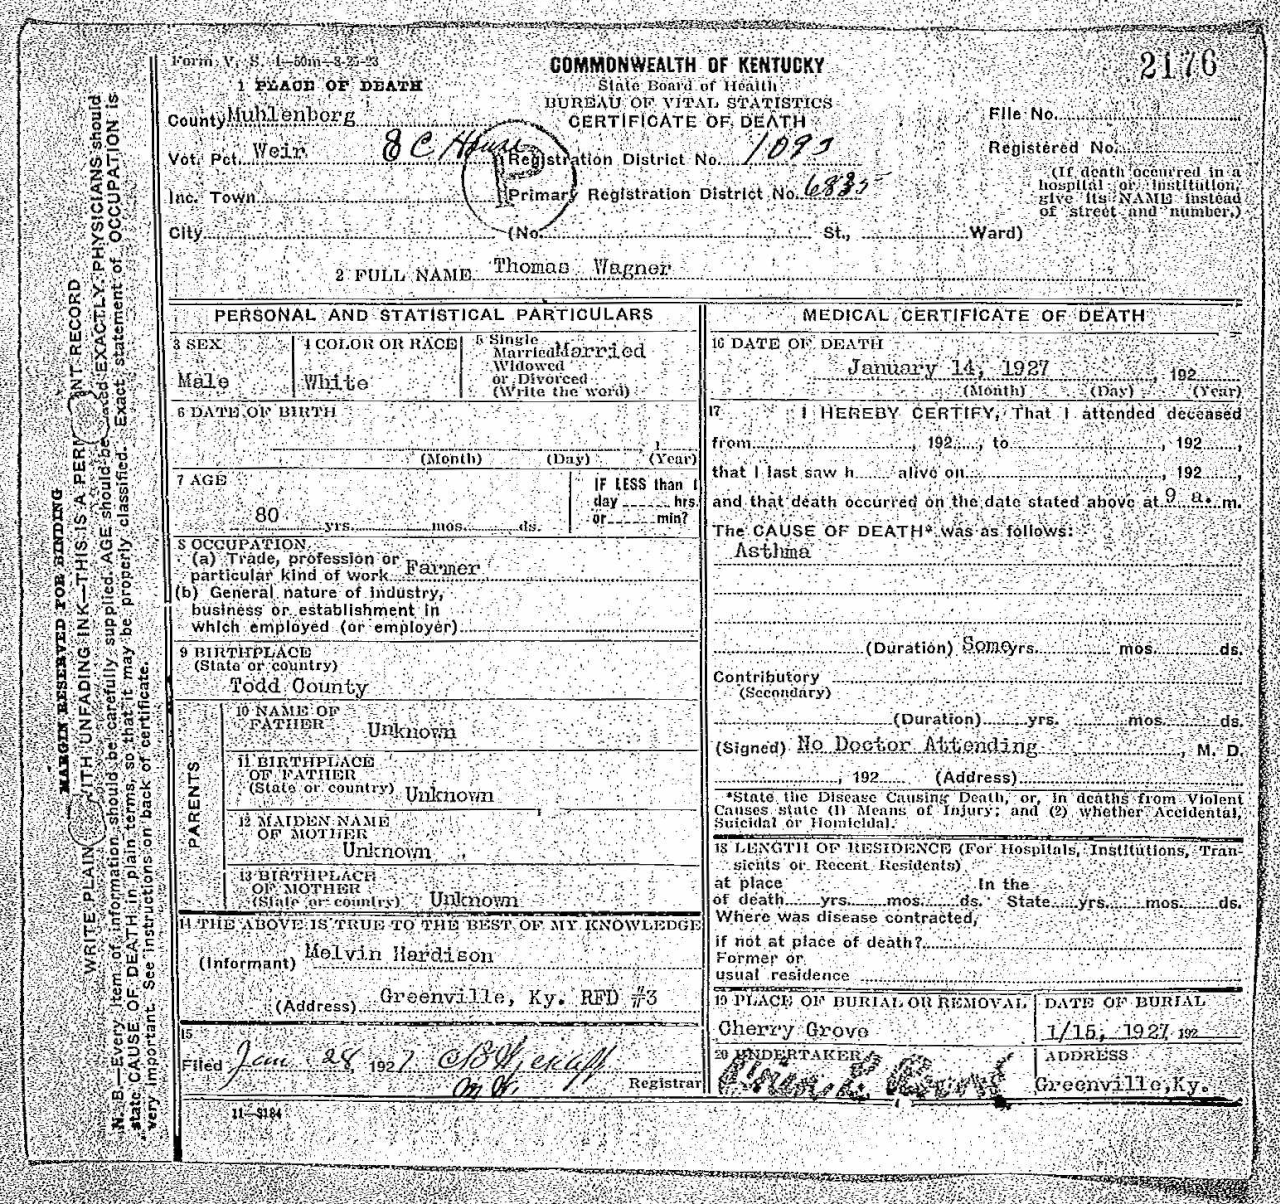 Form V. S. 1—50m—8-25-23
2176
COMMONWEALTH OF KENTUCKY
State Board of Health
BUREAU OF VITAL STATISTICS
CERTIFICATE OF DEATH
1 PLACE OF DEATH
County Muhlenborg
Vot. Pct. Weir
Inc. Town
City (No. St., Ward)
P
Registration District No. 1093
Primary Registration District No. 6835
File No.
Registered No.
(If death occurred in a
hospital or institution,
give its NAME instead
of street and number.)
2 FULL NAME Thomas Wagner
PERSONAL AND STATISTICAL PARTICULARS
3 SEX
Male
4 COLOR OR RACE
White
5 Single
Married Married
Widowed
or Divorced
(Write the word)
6 DATE OF BIRTH
(Month) (Day) (Year)
7 AGE
80 yrs. mos. ds.
IF LESS than 1
day hrs.
or min?
8 OCCUPATION
(a) Trade, profession or
particular kind of work Farmer
(b) General nature of industry,
business or establishment in
which employed (or employer)
9 BIRTHPLACE
(State or country)
Todd County
PARENTS
10 NAME OF
FATHER Unknown
11 BIRTHPLACE
OF FATHER
(State or country) Unknown
12 MAIDEN NAME
OF MOTHER
Unknown
13 BIRTHPLACE
OF MOTHER
(State or country) Unknown
14 THE ABOVE IS TRUE TO THE BEST OF MY KNOWLEDGE
(Informant) Melvin Hardison
(Address) Greenville, Ky. RFD #3
15
Filed Jan 28, 1927
Registrar
11—3184
MEDICAL CERTIFICATE OF DEATH
16 DATE OF DEATH
January 14, 1927, 192
(Month) (Day) (Year)
17 I HEREBY CERTIFY, That I attended deceased
from , 192 , to , 192 ,
that I last saw h alive on , 192 ,
and that death occurred on the date stated above at 9 a. m.
The CAUSE OF DEATH* was as follows:
Asthma
(Duration) Some yrs. mos. ds.
Contributory
(Secondary)
(Duration) yrs. mos. ds.
(Signed) No Doctor Attending , M. D.
, 192 (Address)
*State the Disease Causing Death, or, in deaths from Violent
Causes state (1) Means of Injury; and (2) whether Accidental,
Suicidal or Homicidal.
18 LENGTH OF RESIDENCE (For Hospitals, Institutions, Tran-
sients or Recent Residents)
at place In the
of death yrs. mos. ds. State yrs. mos. ds.
Where was disease contracted,
if not at place of death?
Former or
usual residence
19 PLACE OF BURIAL OR REMOVAL
Cherry Grove
DATE OF BURIAL
1/15, 1927, 192
20 UNDERTAKER
ADDRESS
Greenville, Ky.
MARGIN RESERVED FOR BINDING
WRITE PLAIN WITH UNFADING INK—THIS IS A PERM NT RECORD
N. B.—Every item of information should be carefully supplied. AGE should be ated EXACTLY. PHYSICIANS should
state CAUSE OF DEATH in plain terms, so that it may be properly classified. Exact statement of OCCUPATION is
very important. See instructions on back of certificate.